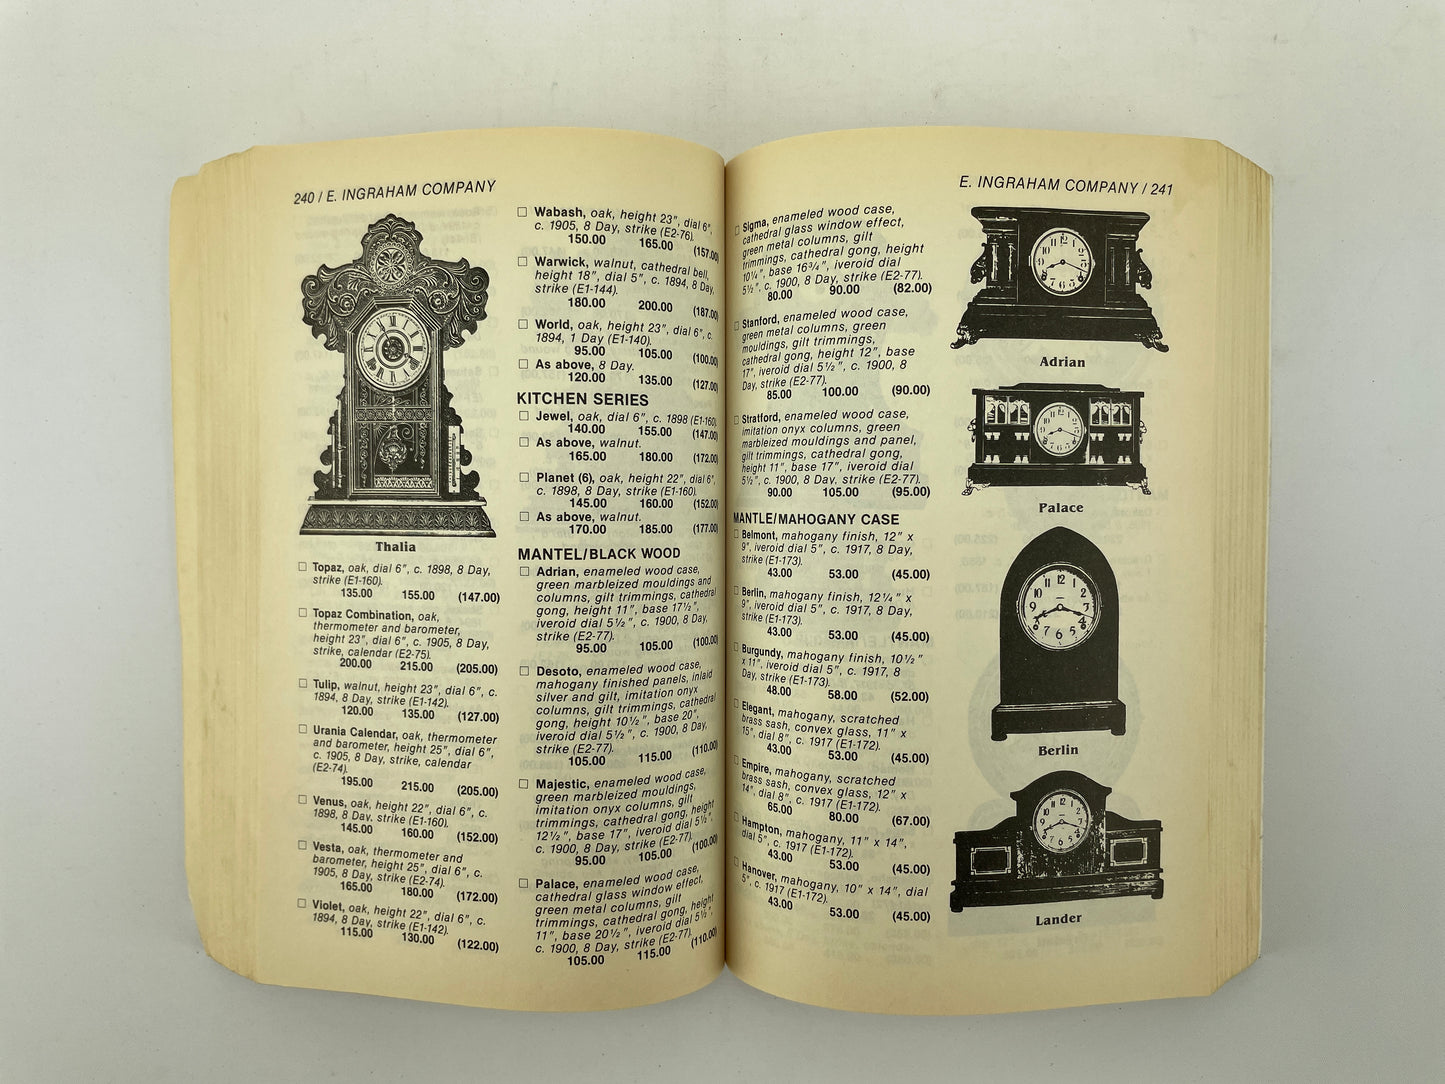 240 / E. INGRAHAM COMPANY
Thalia
☐ Topaz, oak, dial 6", c. 1898, 8 Day,
strike (E1-160).
135.00 155.00 (147.00)
☐ Topaz Combination, oak,
thermometer and barometer,
height 23", dial 6", c. 1905, 8 Day,
strike, calendar (E2-75).
200.00 215.00 (205.00)
☐ Tulip, walnut, height 23", dial 6", c.
1894, 8 Day, strike (E1-142).
120.00 135.00 (127.00)
☐ Urania Calendar, oak, thermometer
and barometer, height 25", dial 6",
c. 1905, 8 Day, strike, calendar
(E2-74).
195.00 215.00 (205.00)
☐ Venus, oak, height 22", dial 6", c.
1898, 8 Day, strike (E1-160).
145.00 160.00 (152.00)
☐ Vesta, oak, thermometer and
barometer, height 25", dial 6", c.
1905, 8 Day, strike (E2-74).
165.00 180.00 (172.00)
☐ Violet, oak, height 22", dial 6", c.
1894, 8 Day, strike (E1-142).
115.00 130.00 (122.00)
☐ Wabash, oak, height 23", dial 6",
c. 1905, 8 Day, strike (E2-76).
150.00 165.00 (157.00)
☐ Warwick, walnut, cathedral bell,
height 18", dial 5", c. 1894, 8 Day,
strike (E1-144).
180.00 200.00 (187.00)
☐ World, oak, height 23", dial 6", c.
1894, 1 Day (E1-140).
95.00 105.00 (100.00)
☐ As above, 8 Day.
120.00 135.00 (127.00)
KITCHEN SERIES
☐ Jewel, oak, dial 6", c. 1898 (E1-160).
140.00 155.00 (147.00)
☐ As above, walnut.
165.00 180.00 (172.00)
☐ Planet (6), oak, height 22", dial 6",
c. 1898, 8 Day, strike (E1-160).
145.00 160.00 (152.00)
☐ As above, walnut.
170.00 185.00 (177.00)
MANTEL/BLACK WOOD
☐ Adrian, enameled wood case,
green marbleized mouldings and
columns, gilt trimmings, cathedral
gong, height 11", base 17½",
iveroid dial 5½", c. 1900, 8 Day,
strike (E2-77).
95.00 105.00 (100.00)
☐ Desoto, enameled wood case,
mahogany finished panels, inlaid
silver and gilt, imitation onyx
columns, gilt trimmings, cathedral
gong, height 10½", base 20",
iveroid dial 5½", c. 1900, 8 Day,
strike (E2-77).
105.00 115.00 (110.00)
☐ Majestic, enameled wood case,
green marbleized mouldings,
imitation onyx columns, gilt
trimmings, cathedral gong, height
12½", base 17", iveroid dial 5½",
c. 1900, 8 Day, strike (E2-77).
95.00 105.00 (100.00)
☐ Palace, enameled wood case,
cathedral glass window effect,
green metal columns, gilt
trimmings, cathedral gong, height
11", base 20½", iveroid dial 5½",
c. 1900, 8 Day, strike (E2-77).
105.00 115.00 (110.00)
E. INGRAHAM COMPANY / 241
☐ Sigma, enameled wood case,
cathedral glass window effect,
green metal columns, gilt
trimmings, cathedral gong, height
10¼", base 16¾", iveroid dial
5½", c. 1900, 8 Day, strike (E2-77).
80.00 90.00 (82.00)
☐ Stanford, enameled wood case,
green metal columns, green
mouldings, gilt trimmings,
cathedral gong, height 12", base
17", iveroid dial 5½", c. 1900, 8
Day, strike (E2-77).
85.00 100.00 (90.00)
☐ Stratford, enameled wood case,
imitation onyx columns, green
marbleized mouldings and panel,
gilt trimmings, cathedral gong,
height 11", base 17", iveroid dial
5½", c. 1900, 8 Day, strike (E2-77).
90.00 105.00 (95.00)
MANTLE/MAHOGANY CASE
☐ Belmont, mahogany finish, 12" x
9", iveroid dial 5", c. 1917, 8 Day,
strike (E1-173).
43.00 53.00 (45.00)
☐ Berlin, mahogany finish, 12¼" x
9", iveroid dial 5", c. 1917, 8 Day,
strike (E1-173).
43.00 53.00 (45.00)
☐ Burgundy, mahogany finish, 10½"
x 11", iveroid dial 5", c. 1917, 8
Day, strike (E1-173).
48.00 58.00 (52.00)
☐ Elegant, mahogany, scratched
brass sash, convex glass, 11" x
15", dial 8", c. 1917 (E1-172).
43.00 53.00 (45.00)
☐ Empire, mahogany, scratched
brass sash, convex glass, 12" x
14", dial 8", c. 1917 (E1-172).
65.00 80.00 (67.00)
☐ Hampton, mahogany, 11" x 14",
dial 5", c. 1917 (E1-172).
43.00 53.00 (45.00)
☐ Hanover, mahogany, 10" x 14", dial
5", c. 1917 (E1-172).
43.00 53.00 (45.00)
Adrian
Palace
Berlin
Lander